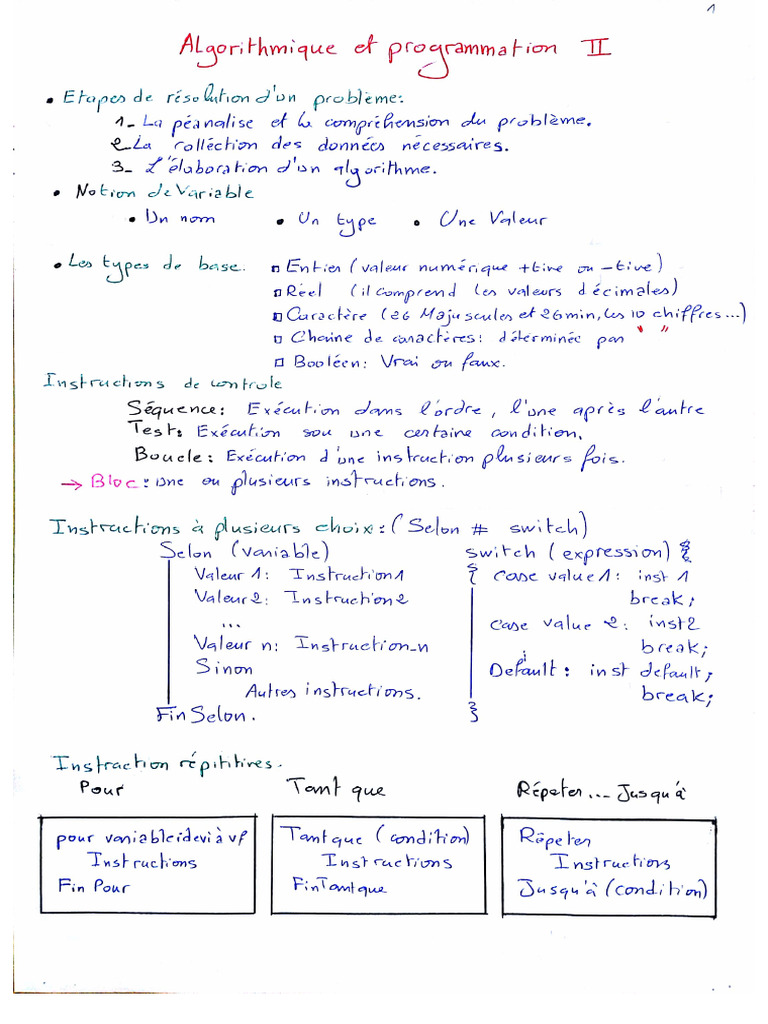 1
Algorithmique et programmation II
• Etapes de résolution d'un problème:
1_ La péanalise et la compréhension du problème.
2_ La colléction des données nécessaires.
3_ L'élaboration d'un algorithme.
• Notion de Variable
• Un nom • Un type • Une Valeur
• Les types de base: Entier (valeur numérique +tive ou -tive)
Réel (il comprend les valeurs décimales)
Caractère (26 Majuscules et 26 min, les 10 chiffres...)
Chaine de caractères: déterminée par " "
Booléen: Vrai ou faux.
Instructions de controle
Séquence: Exécution dans l'ordre, l'une après l'autre
Test: Exécution sou une certaine condition.
Boucle: Exécution d'une instruction plusieurs fois.
→ Bloc: une ou plusieurs instructions.
Instructions à plusieurs choix: (Selon # switch)
Selon (variable) switch (expression) {
Valeur 1: Instruction1 { case value1: inst 1
Valeur2: Instruction2 break;
... case value 2: inst2
Valeur n: Instruction_n break;
Sinon Default: inst default;
Autres instructions. break;
Fin Selon. }
Instraction répititives.
Pour Tant que Répeter... Jusqu'à
pour variable:devi à vf Tantque (condition) Répeter
Instructions Instructions Instructions
Fin Pour FinTantque Jusqu'à (condition)